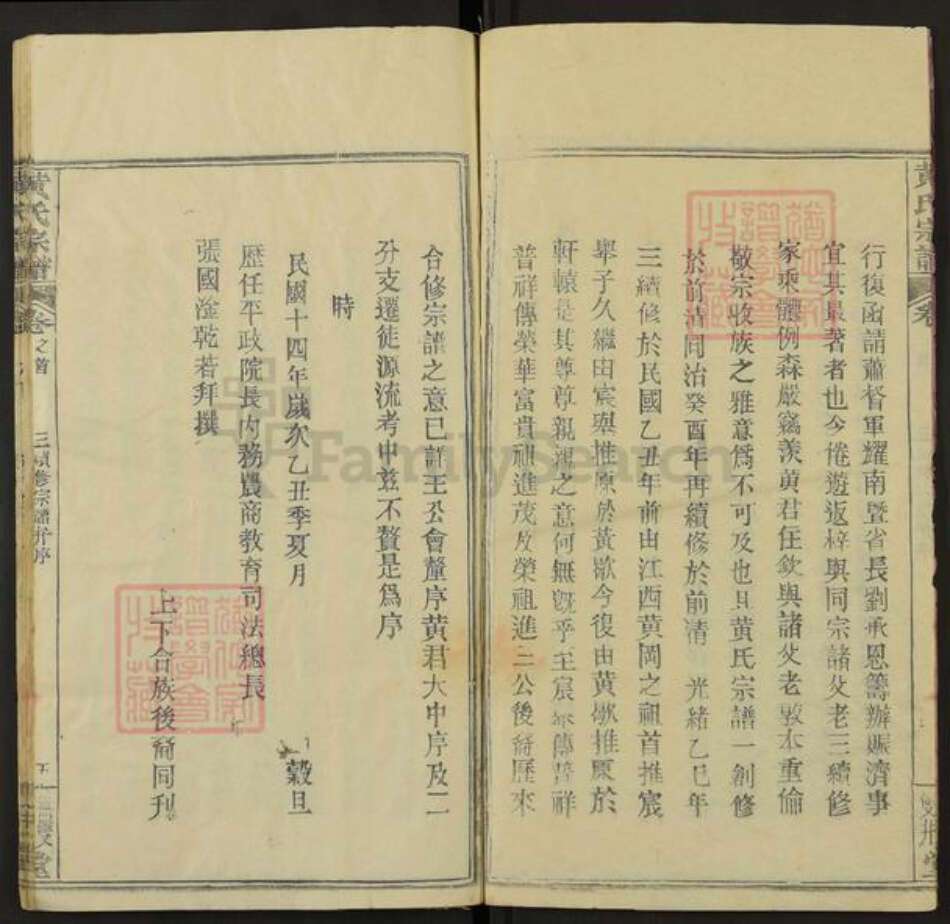 行復函請蕭督軍耀南暨省長劉承恩籌辦賑濟事
宜其最著者也今倦遊返梓與同宗諸父老三續修
家乘體例森嚴竊羨黄君任欽與諸父老敦本重倫
敬宗收族之雅意爲不可及也且黄氏宗譜一創修
於前清同治癸酉年再續修於前清 光緒乙巳年
三續修於民國乙丑年前由江西黄岡之祖首推宸
舉子久繼由宸與推原於黄歇今復由黄歇推原於
軒轅是其尊尊親親之意何無既乎至宸 傳普祥
普祥傳榮華富貴祖進茂及榮祖進二公後裔歷來
合修宗譜之意已詳王公會釐序黄君大中序及二
分支遷徒源流考中茲不贅是爲序
時
民國十四年歲次乙丑季夏月 穀旦
歷任平政院長内務農商教育司法總長
張國淦乾若拜撰
上下合族後裔同刊
黄氏宗譜 卷之首 三續修宗譜弁序 五 雙 堂
黄氏宗譜 卷
FamilySearch